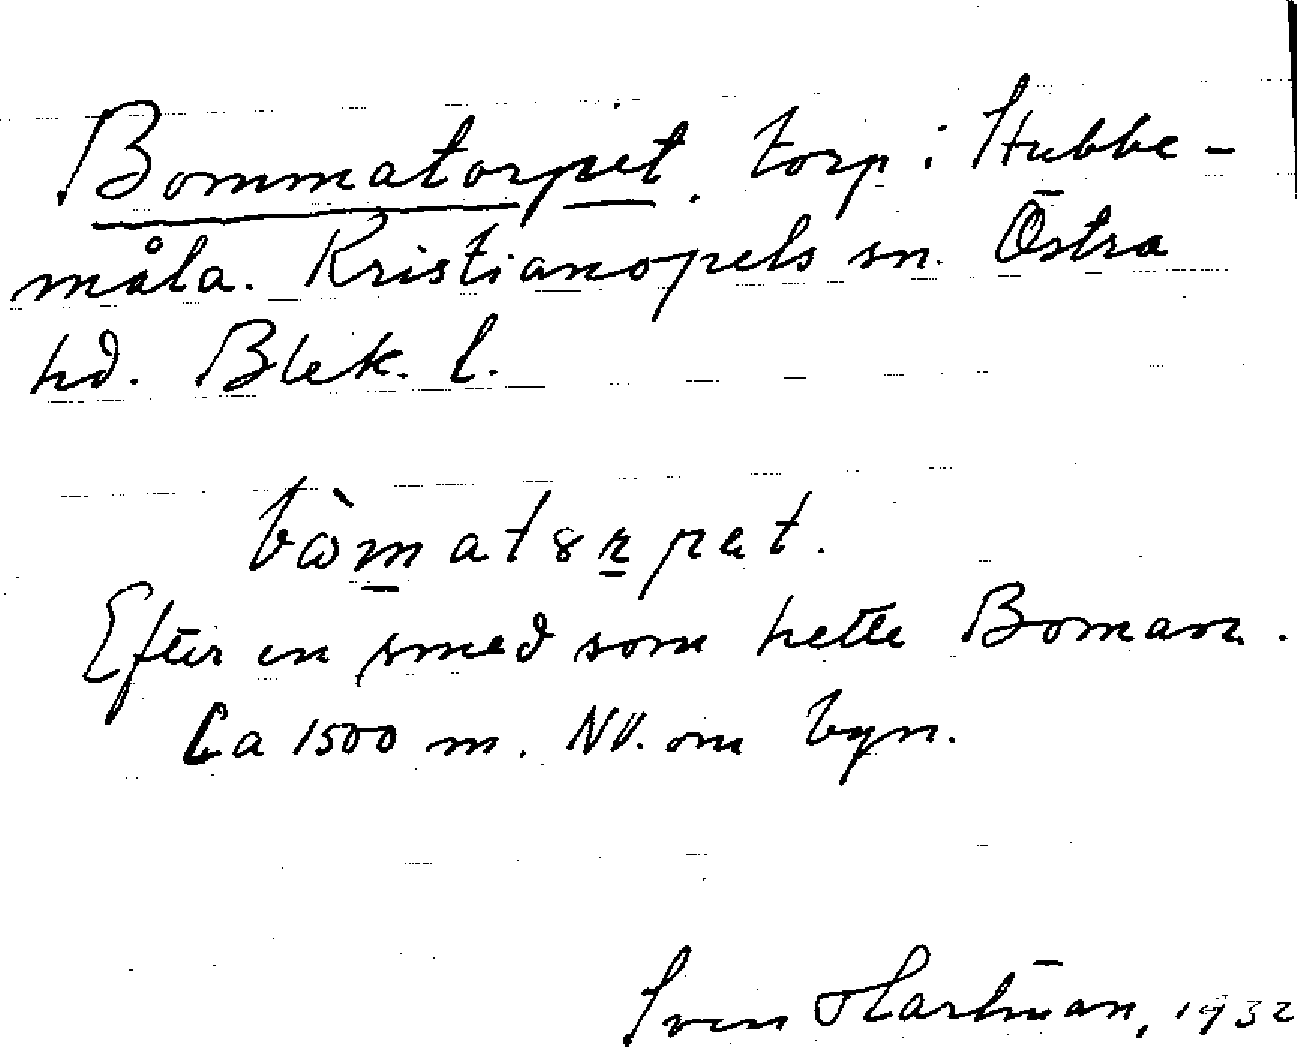 Bommatorpet, torp i Stubbe-
måla. Kristianopels sn. Östra
hd. Blek. l.
Efter en smed som hette Boman.
Ca 1500 m. NV. om byn.
Sven Hartman, 1932